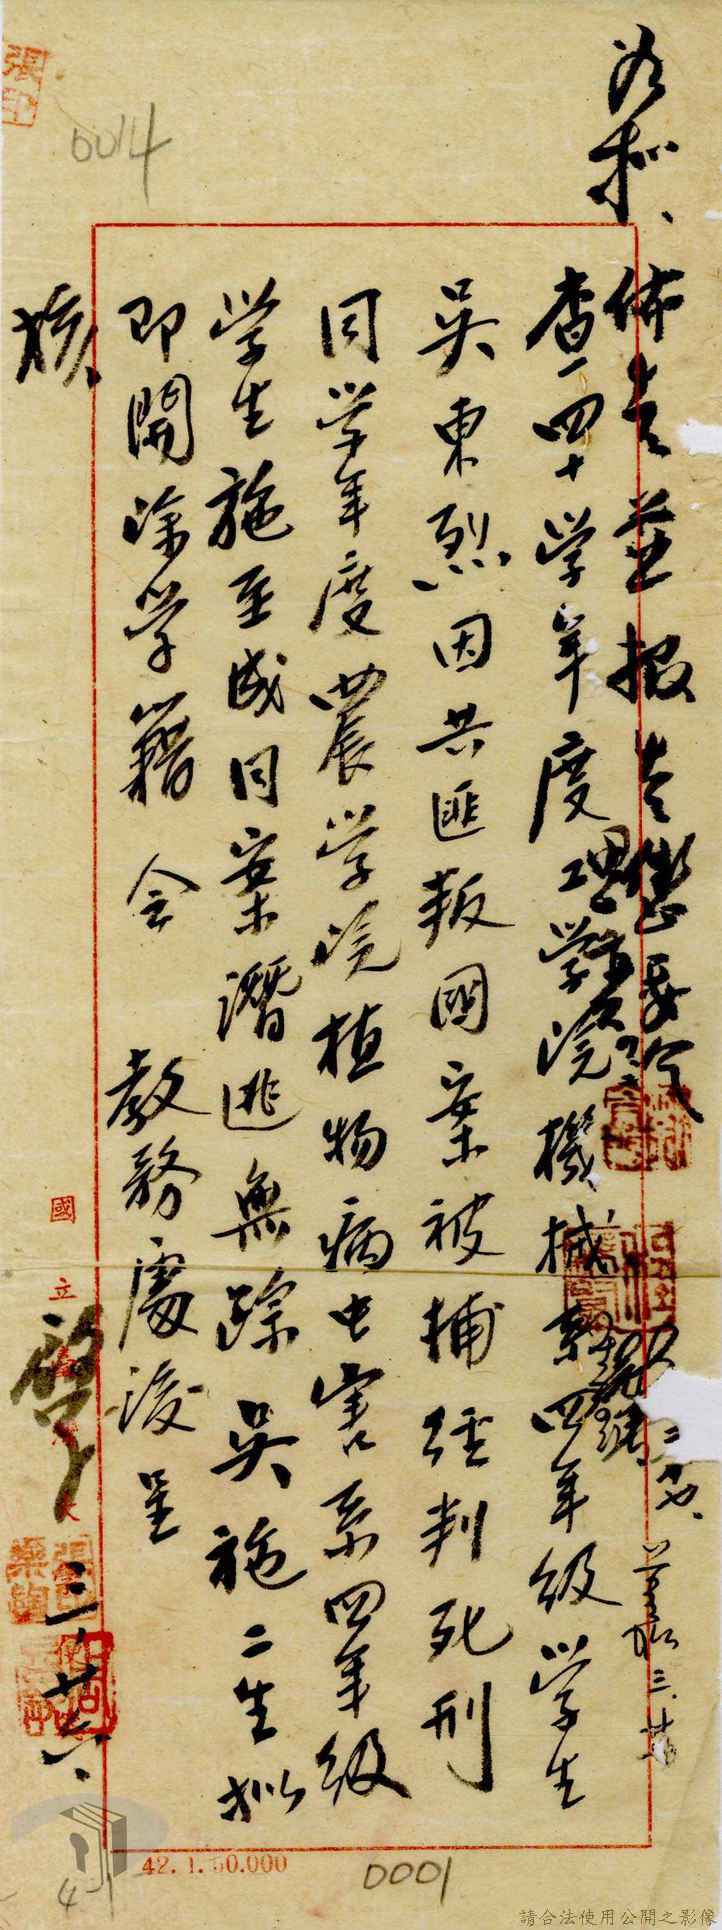 如擬、
佈告並報告
查四十學年度工學院機械系四年級學生
吳東烈因共匪叛國案被捕經判死刑
同學年度農學院植物病虫害系四年級
學生施至成同案潛逃無踪吳施二生擬
即開除學籍 会 教務處後呈
核
三、廿六、
國立
42.1.50.000
0014
0001
4
請合法使用公開之影像